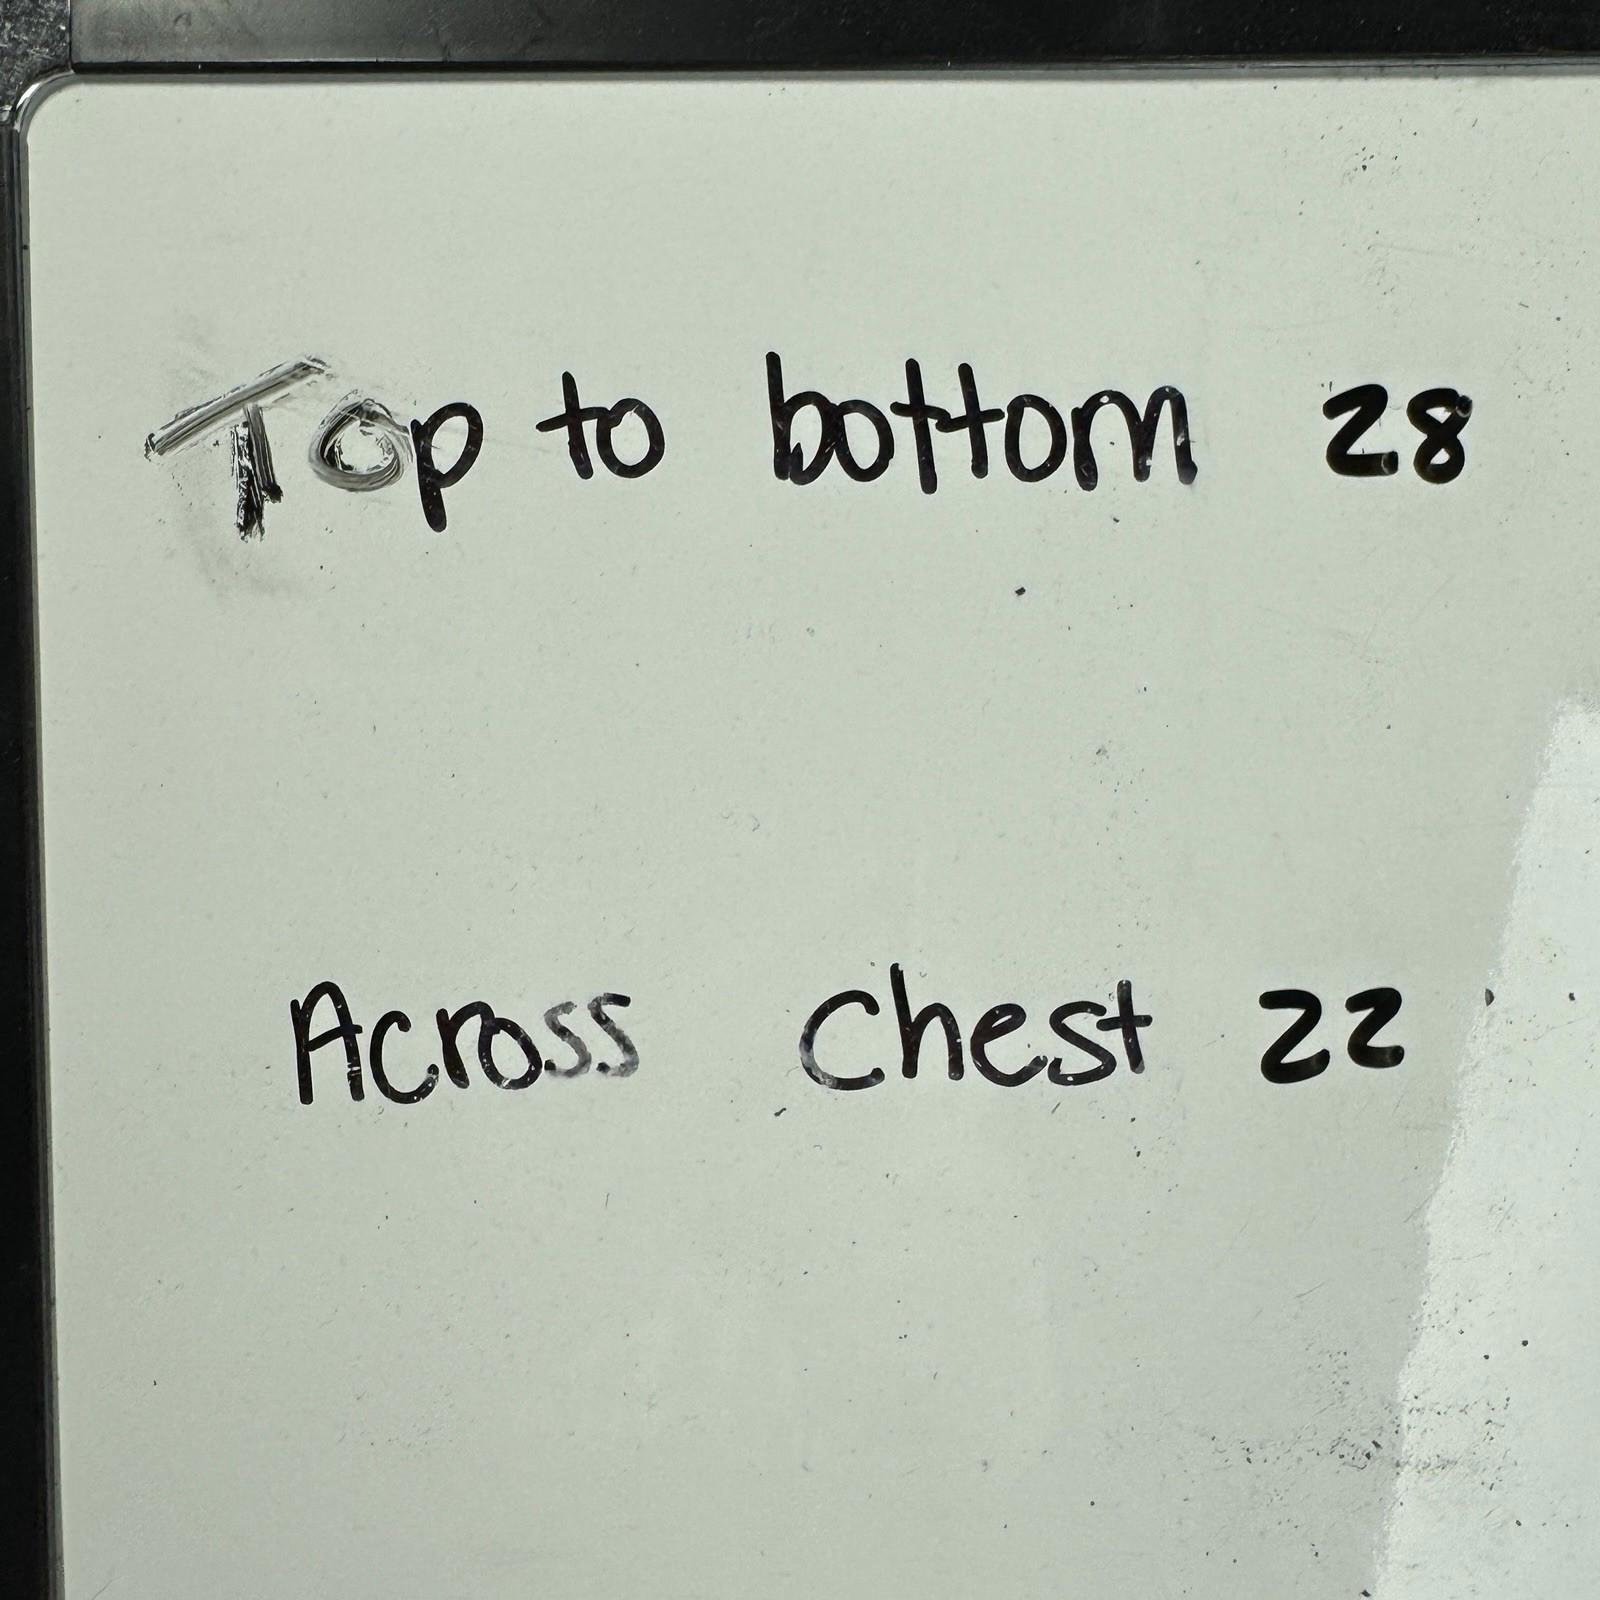 Top to bottom 28
Across Chest 22